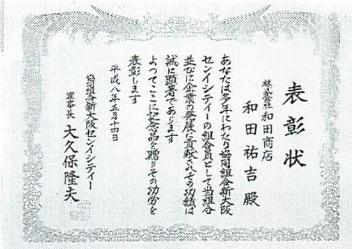 表彰状
株式会社 和田商店
和田祐吉 殿
あなたは多年にわたり協同組合新大阪
センイシティーの組合員として当組合
並びに企業の発展に貢献されその功績は
誠に顕著であります
よってここに記念品を贈りその功労を
表彰します
平成八年五月十四日
協同組合新大阪センイシティー
理事長 大久保隆夫